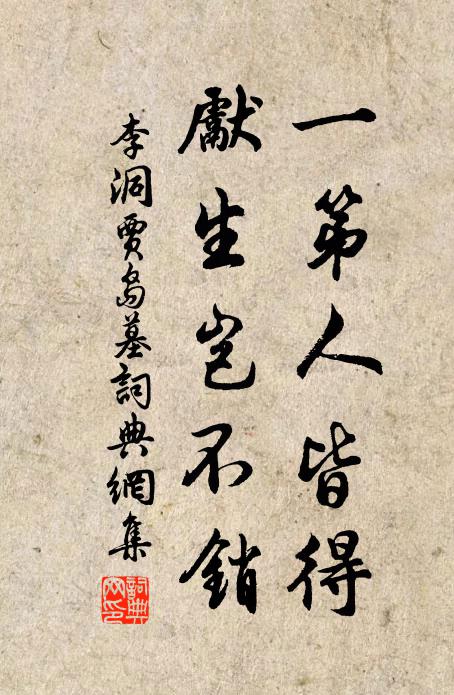 一第人皆得
獻生豈不銷
李洞賈島墓詞典網集
詞典
网印